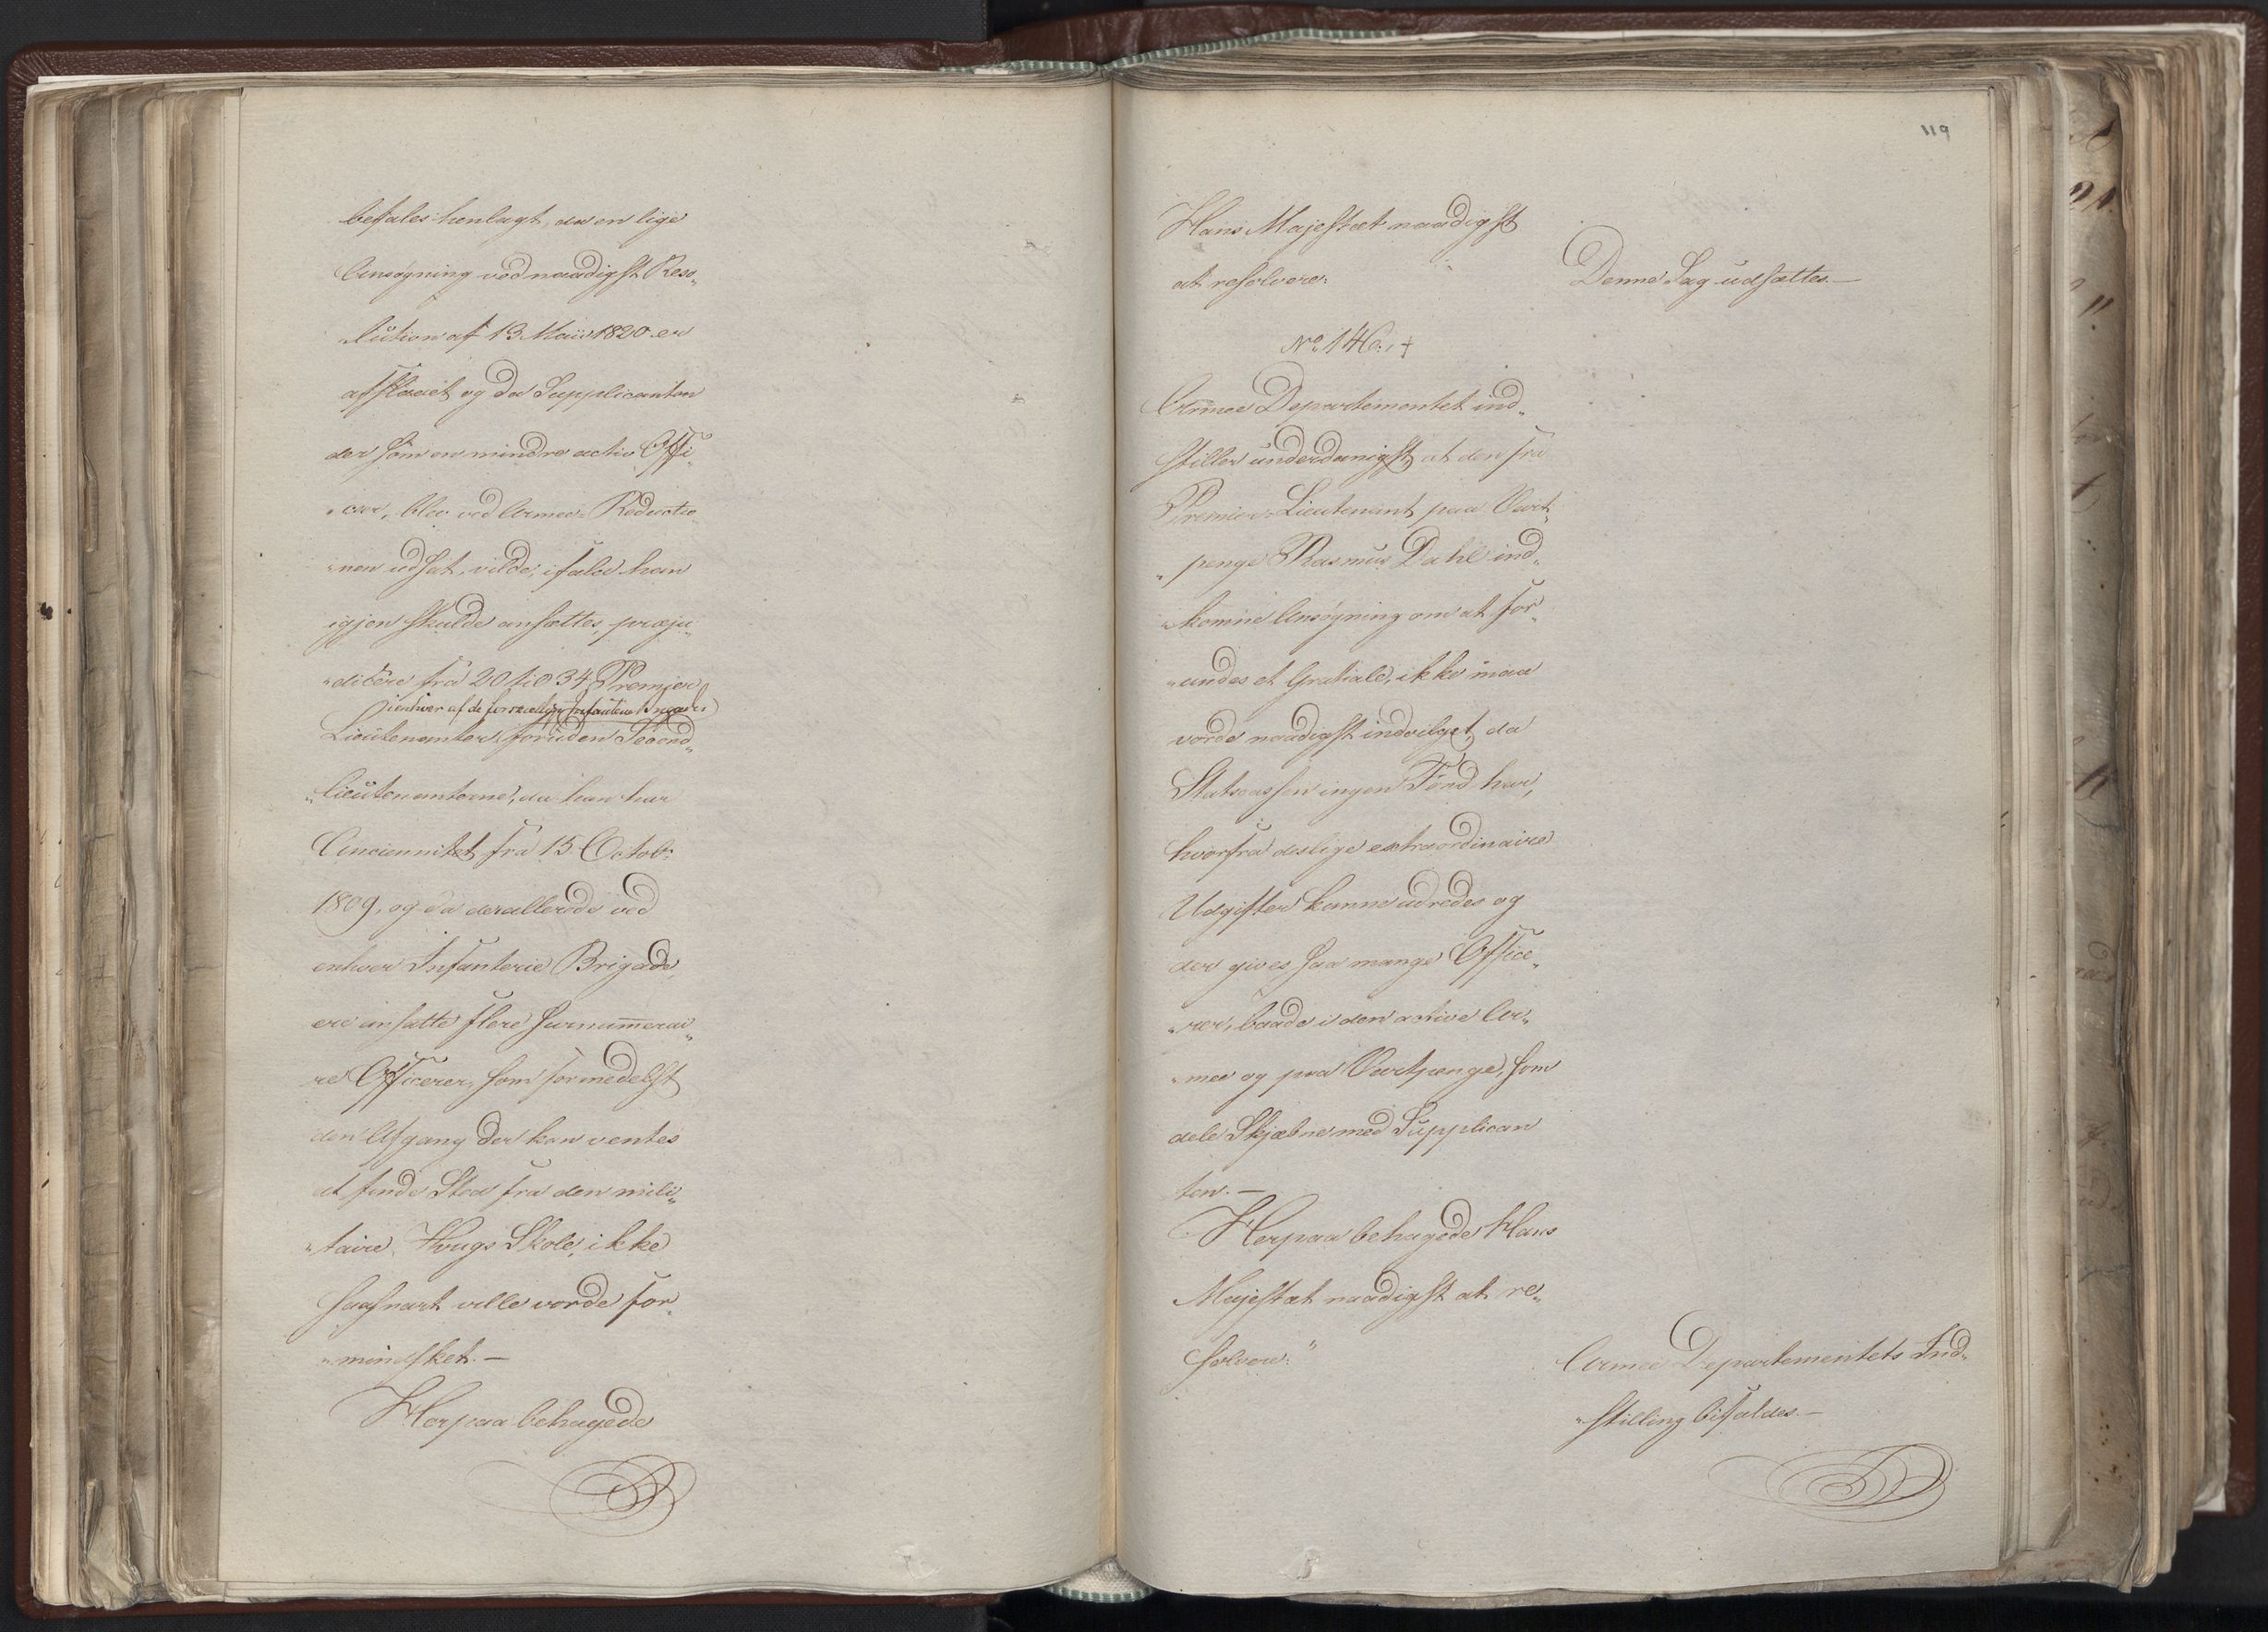 befales henlagt, da en lige
Ansøgning ved naadigst Reso„
„lution af 13 Maii 1820 er
afslaaet og da Supplicanten
der som en mindre activ Offi
„cier, blev ved Armee-Reductio„
„nen udsat, vilde, ifald han
igjen skulde ansættes, præju„
„dicere fra 20 til 34 Premier
i enhver af de forskjellige Infanterie Brigader
Lieutenanter foruden Second„
„lieutenanterne, da han har
Anciennitet fra 15 Octobr:
1809, og da der allerede ved
enhver Infanterie Brigade,
ere ansatte flere Surnumerai„
re Officerer, som formedelst
den Afgang der kan ventes
at finde Sted fra den mili„
„taire Høugs Skole, ikke
saasnart ville vorde for„
„mindsket. —
Herpaa behagede
119
Hans Majestæt naadigst
at resolvere:
Denne Sag udsættes. —
No 146. +
Armee Departementet ind„
stiller underdanigst, at den fra
Premier-Lieutenant paa Vart„
„penge Rasmus Dahl ind„
„komne Ansøgning om at for„
„undes et Gratiale, ikke maa
vorde naadigst indvilget, da
Statscassen ingen Fond har,
hvorfra deslige extraordinaire
Udgifter kunne udredes og
der gives saa mange Office„
„rer, baade i den active Ar„
„mee og paa Vartpenge, som
dele Skjæbne med Supplican
ten. —
Herpaa behagede Hans
Majestæt naadigst at re„
solvere:"
Armee Departementets Ind„
„stilling bifaldes. —